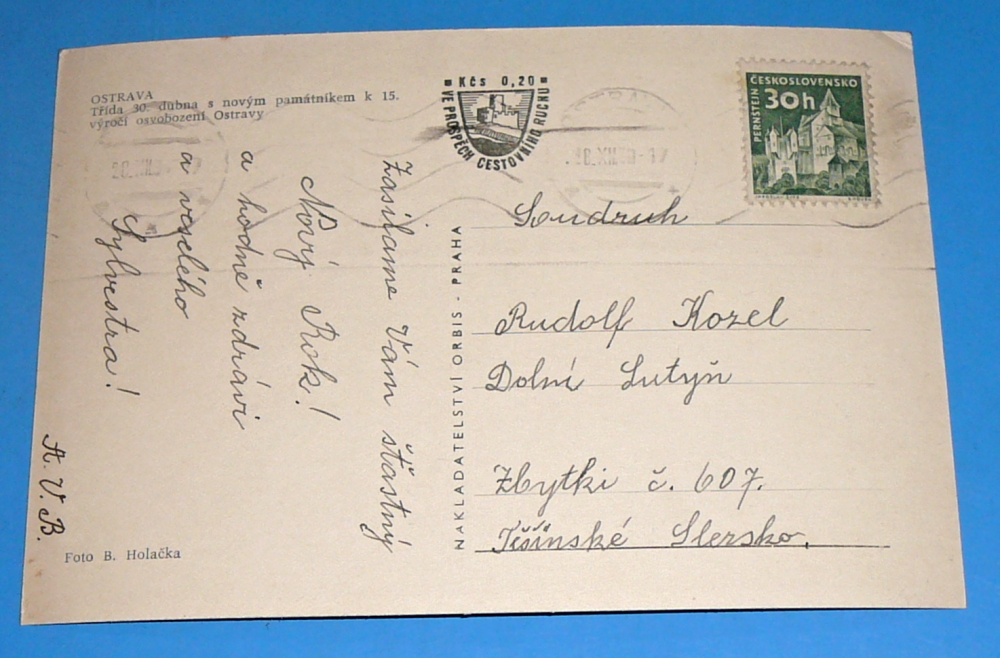 OSTRAVA
Třída 30. dubna s novým památníkem k 15.
výročí osvobození Ostravy
Kčs 0,20
VE PROSPĚCH CESTOVNÍHO RUCHU
ČESKOSLOVENSKO
30h
PERNŠTEJN
Zasilame Vám šťastný
Nový Rok!
a hodně zdráví
a veselého
Sylvestra!
A. V. B.
Foto B. Holačka
NAKLADATELSTVÍ ORBIS - PRAHA
Soudruh
Rudolf Kozel
Dolní Lutyň
Zbytki č. 607.
Těšínské Slezsko.